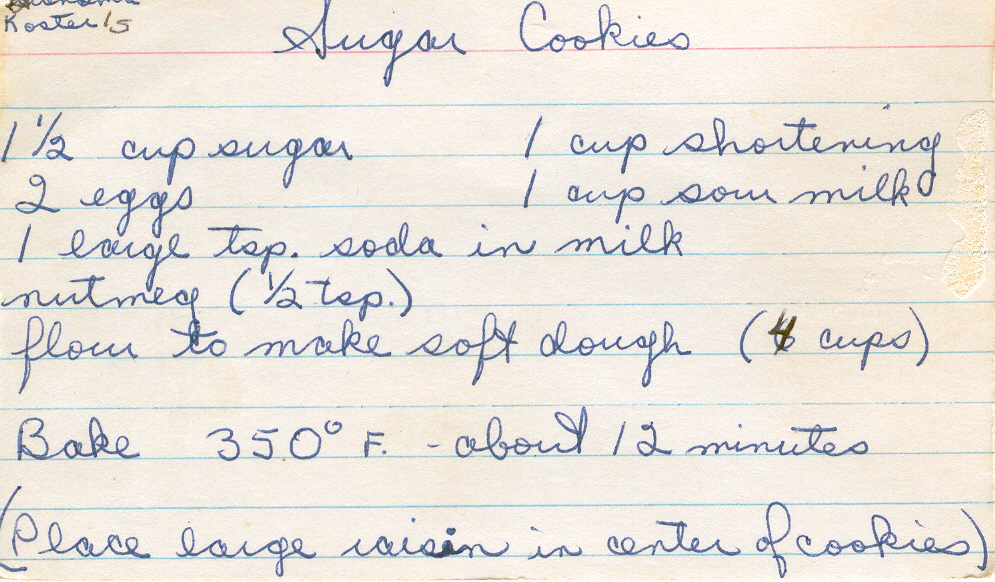 Koster's
Sugar Cookies
1 1/2 cup sugar 1 cup shortening
2 eggs 1 cup sour milk
1 large tsp. soda in milk
nutmeg (1/2 tsp.)
flour to make soft dough (4 cups)
Bake 350° F. - about 12 minutes
(Place large raisin in center of cookies)